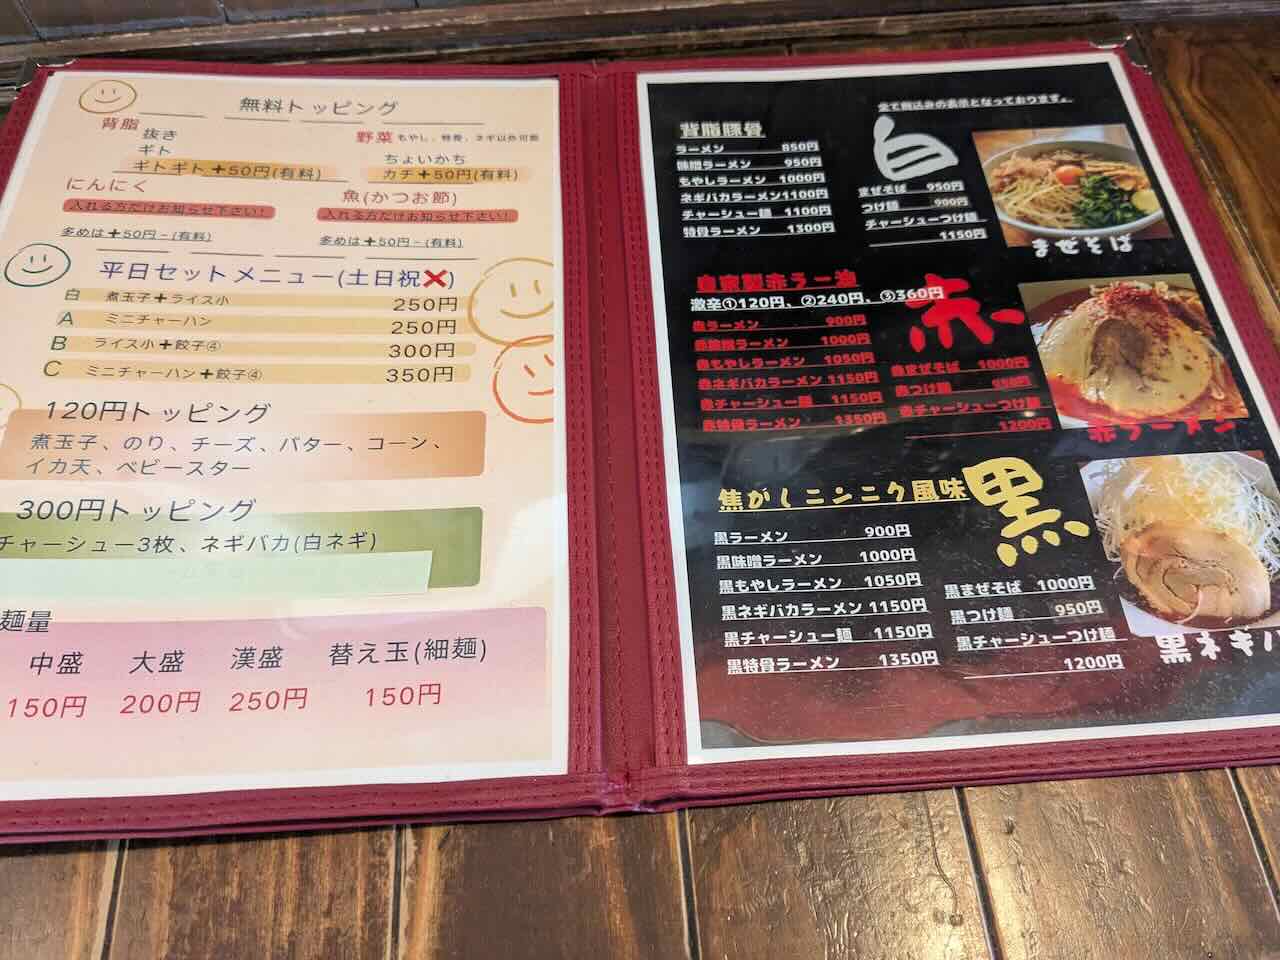 無料トッピング
背脂
抜き
ギト
ギトギト+50円(有料)
野菜 もやし、特骨、ネギ以外可能
ちょいかち
カチ+50円(有料)
にんにく
入れる方だけお知らせ下さい!
多めは+50円-(有料)
魚(かつお節)
入れる方だけお知らせ下さい!
多めは+50円-(有料)
平日セットメニュー(土日祝❌)
白 煮玉子+ライス小 250円
A ミニチャーハン 250円
B ライス小+餃子④ 300円
C ミニチャーハン+餃子④ 350円
120円トッピング
煮玉子、のり、チーズ、バター、コーン、
イカ天、ベビースター
300円トッピング
チャーシュー3枚、ネギバカ(白ネギ)
麺量
中盛 大盛 漢盛 替え玉(細麺)
150円 200円 250円 150円
全て税込みの表示となっております。
背脂豚骨
白
ラーメン 850円
味噌ラーメン 950円
もやしラーメン 1000円
ネギバカラーメン 1100円
チャーシュー麺 1100円
特骨ラーメン 1300円
まぜそば 950円
つけ麺 900円
チャーシューつけ麺
1150円
まぜそば
自家製赤ラー油
激辛①120円、②240円、③360円
赤
赤ラーメン 900円
赤味噌ラーメン 1000円
赤もやしラーメン 1050円
赤ネギバカラーメン 1150円
赤チャーシュー麺 1150円
赤特骨ラーメン 1350円
赤まぜそば 1000円
赤つけ麺 950円
赤チャーシューつけ麺
1200円
赤ラーメン
焦がしニンニク風味
黒
黒ラーメン 900円
黒味噌ラーメン 1000円
黒もやしラーメン 1050円
黒ネギバカラーメン 1150円
黒チャーシュー麺 1150円
黒特骨ラーメン 1350円
黒まぜそば 1000円
黒つけ麺 950円
黒チャーシューつけ麺
1200円
黒ネギバ